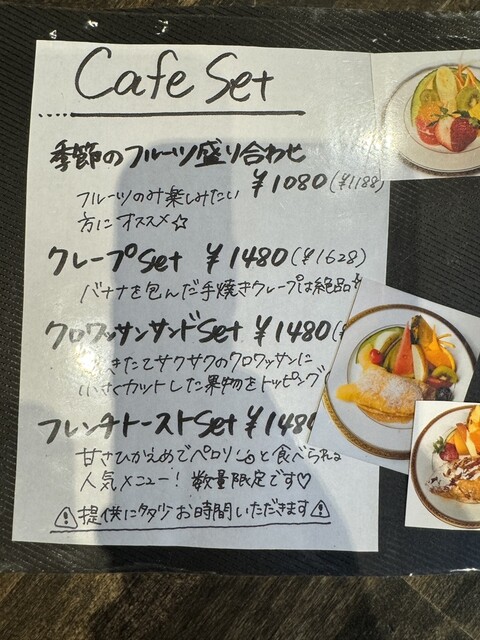 Cafe Set
季節のフルーツ盛り合わせ
¥1080(¥1188)
フルーツのみ楽しみたい
方にオススメ☆
クレープSet ¥1480(¥1628)
バナナを包んだ手焼きクレープは絶品
クロワッサンサンドSet ¥1480(
きたてサクサクのクロワッサンに
小さくカットした果物をトッピング
フレンチトーストSet ¥148
甘さひかえめでペロリと食べられる
人気メニュー! 数量限定です♡
⚠提供に多少お時間いただきます⚠